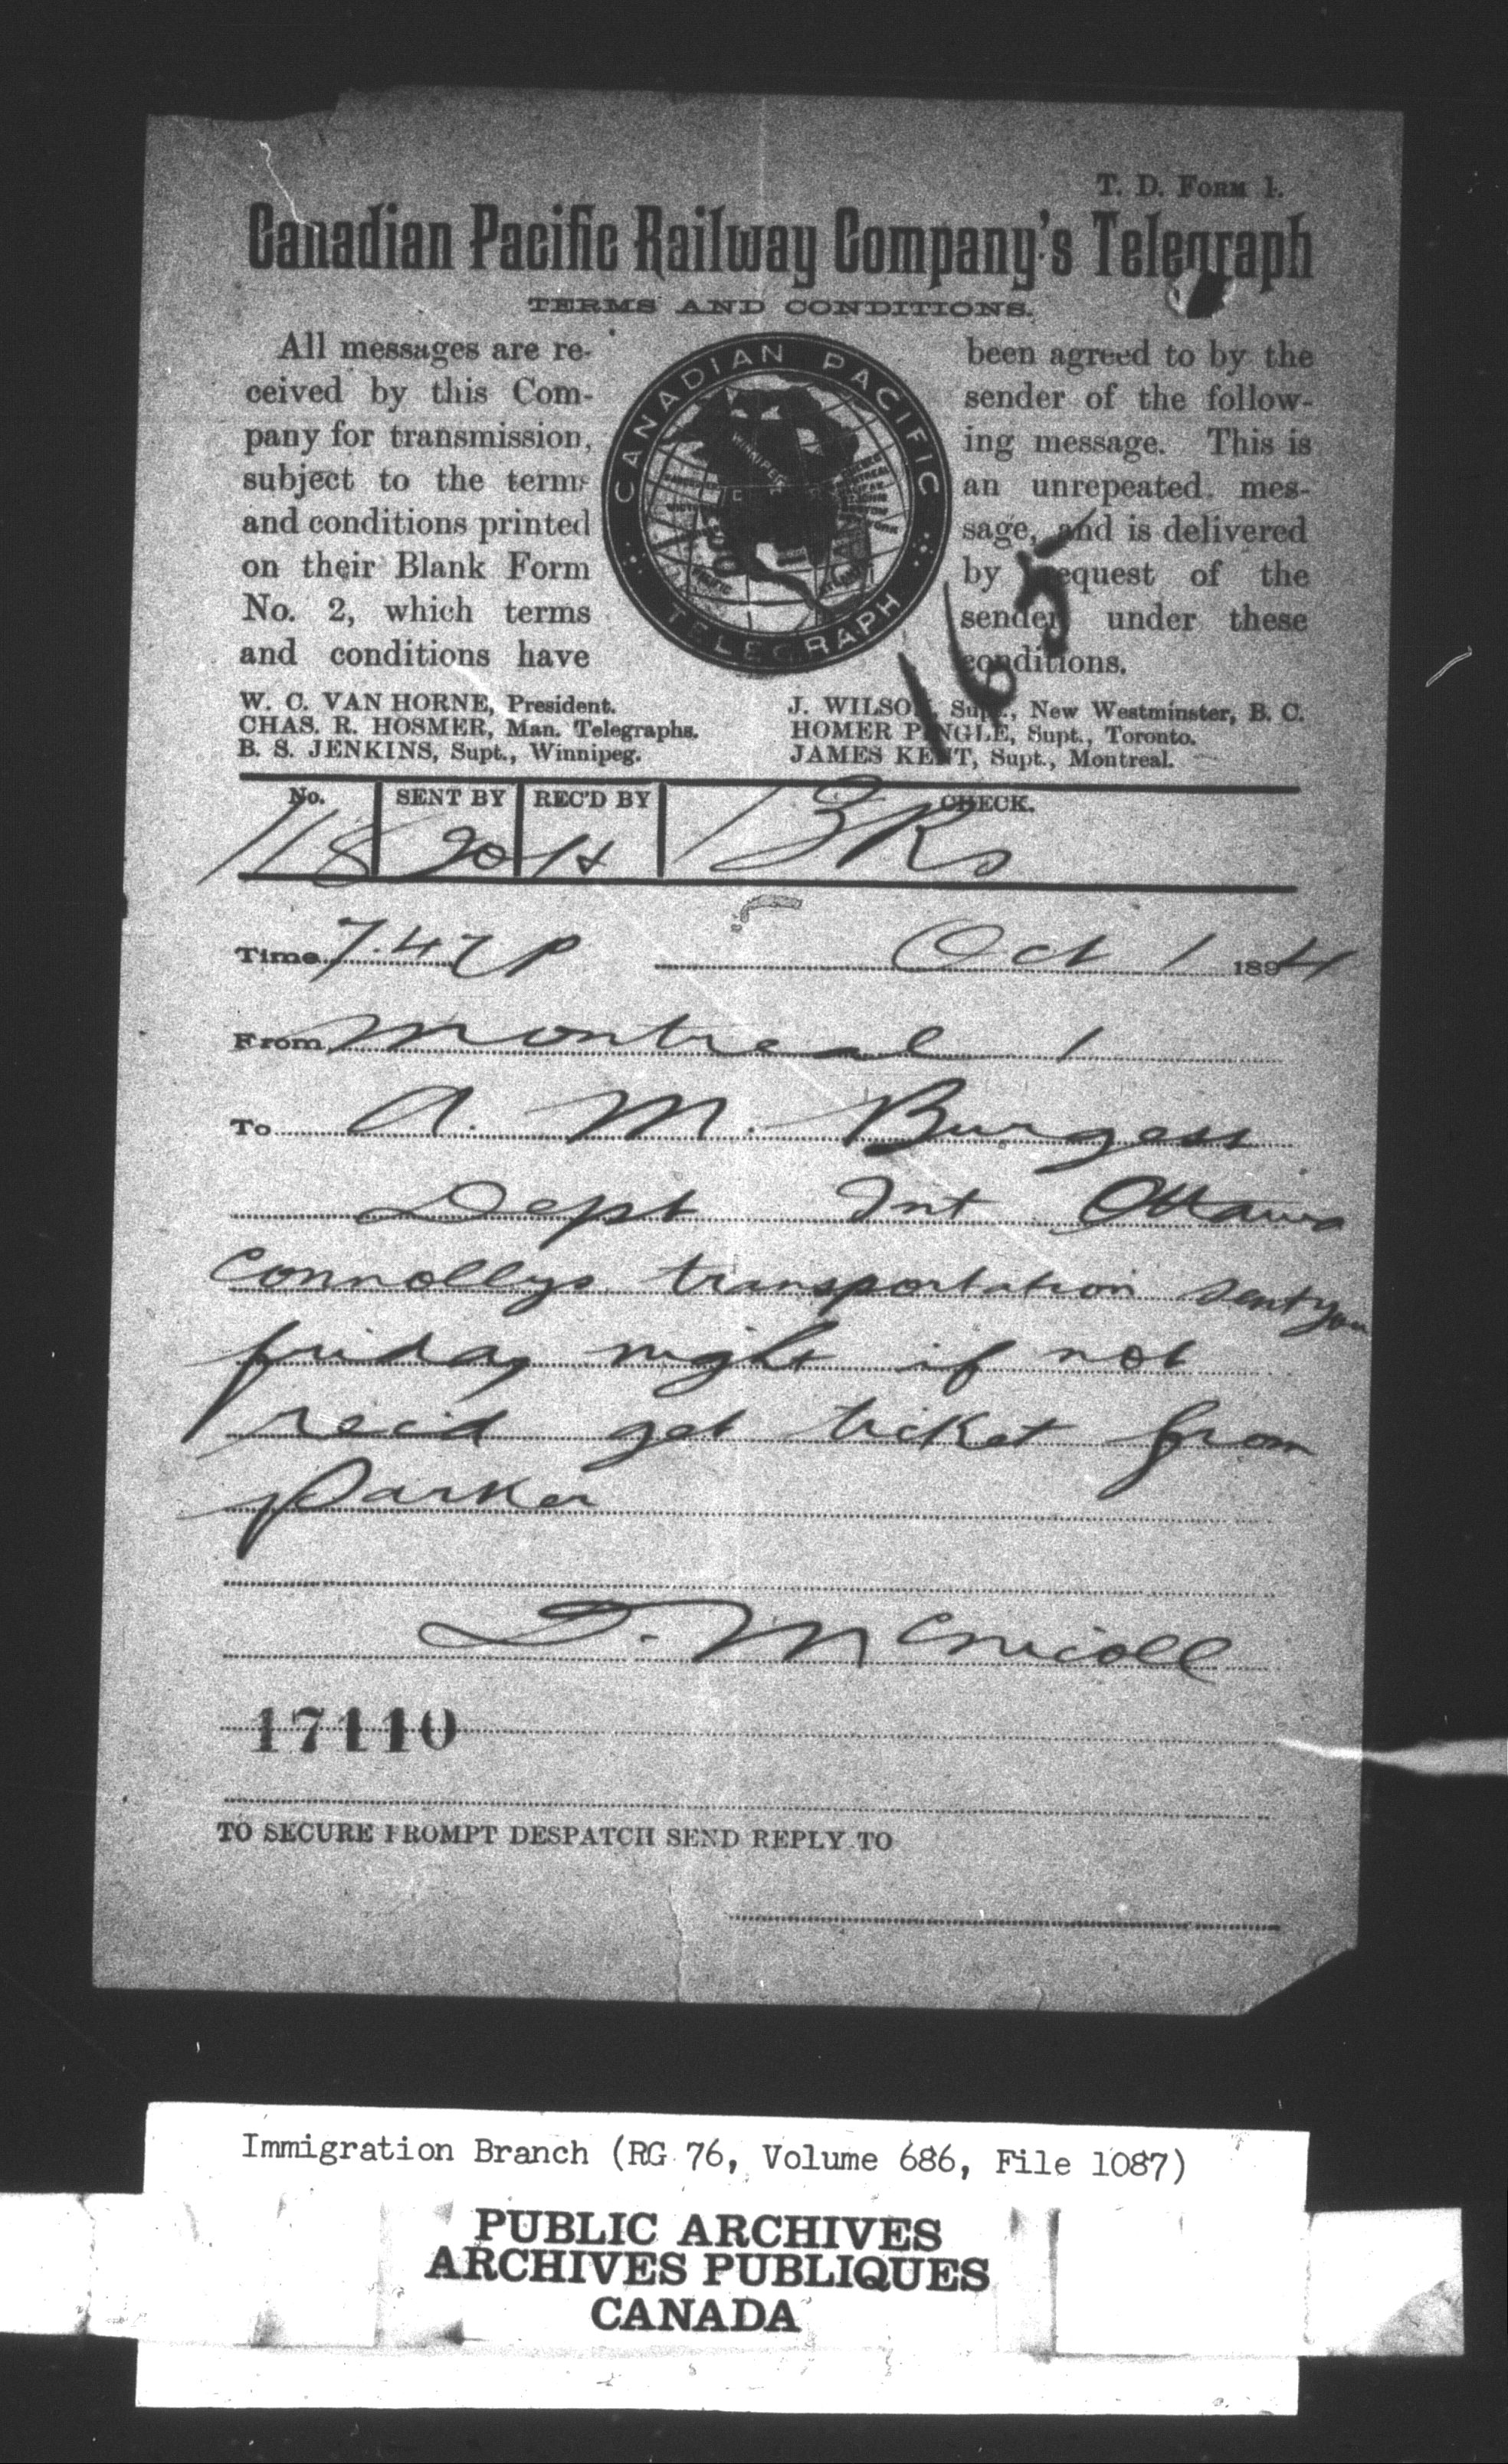 T. D. FORM 1.
Canadian Pacific Railway Company's Telegraph
TERMS AND CONDITIONS.
All messages are re-
ceived by this Com-
pany for transmission,
subject to the terms
and conditions printed
on their Blank Form
No. 2, which terms
and conditions have
CANADIAN PACIFIC
TELEGRAPH
WINNIPEG
been agreed to by the
sender of the follow-
ing message. This is
an unrepeated mes-
sage, and is delivered
by request of the
sender under these
conditions.
165
W. C. VAN HORNE, President.
CHAS. R. HOSMER, Man. Telegraphs.
B. S. JENKINS, Supt., Winnipeg.
J. WILSON, Supt., New Westminster, B. C.
HOMER PINGLE, Supt., Toronto.
JAMES KENT, Supt., Montreal.
No. SENT BY REC'D BY CHECK.
118
Time 7.47 P Oct 1 1894
From Montreal 1
To A. M. Burgess
Dept Int Ottawa
Connollys transportation sent you
friday night if not
recd get ticket from
Parker
D. McNicoll
17110
TO SECURE PROMPT DESPATCH SEND REPLY TO
Immigration Branch (RG 76, Volume 686, File 1087)
PUBLIC ARCHIVES
ARCHIVES PUBLIQUES
CANADA